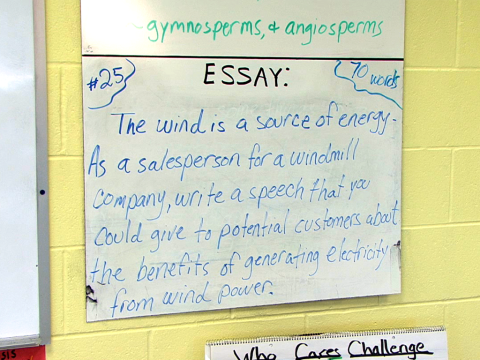 -gymnosperms, & angiosperms
#25
ESSAY:
70 words
The wind is a source of energy.
As a salesperson for a windmill
company, write a speech that you
could give to potential customers about
the benefits of generating electricity
from wind power.
Who Cares Challenge